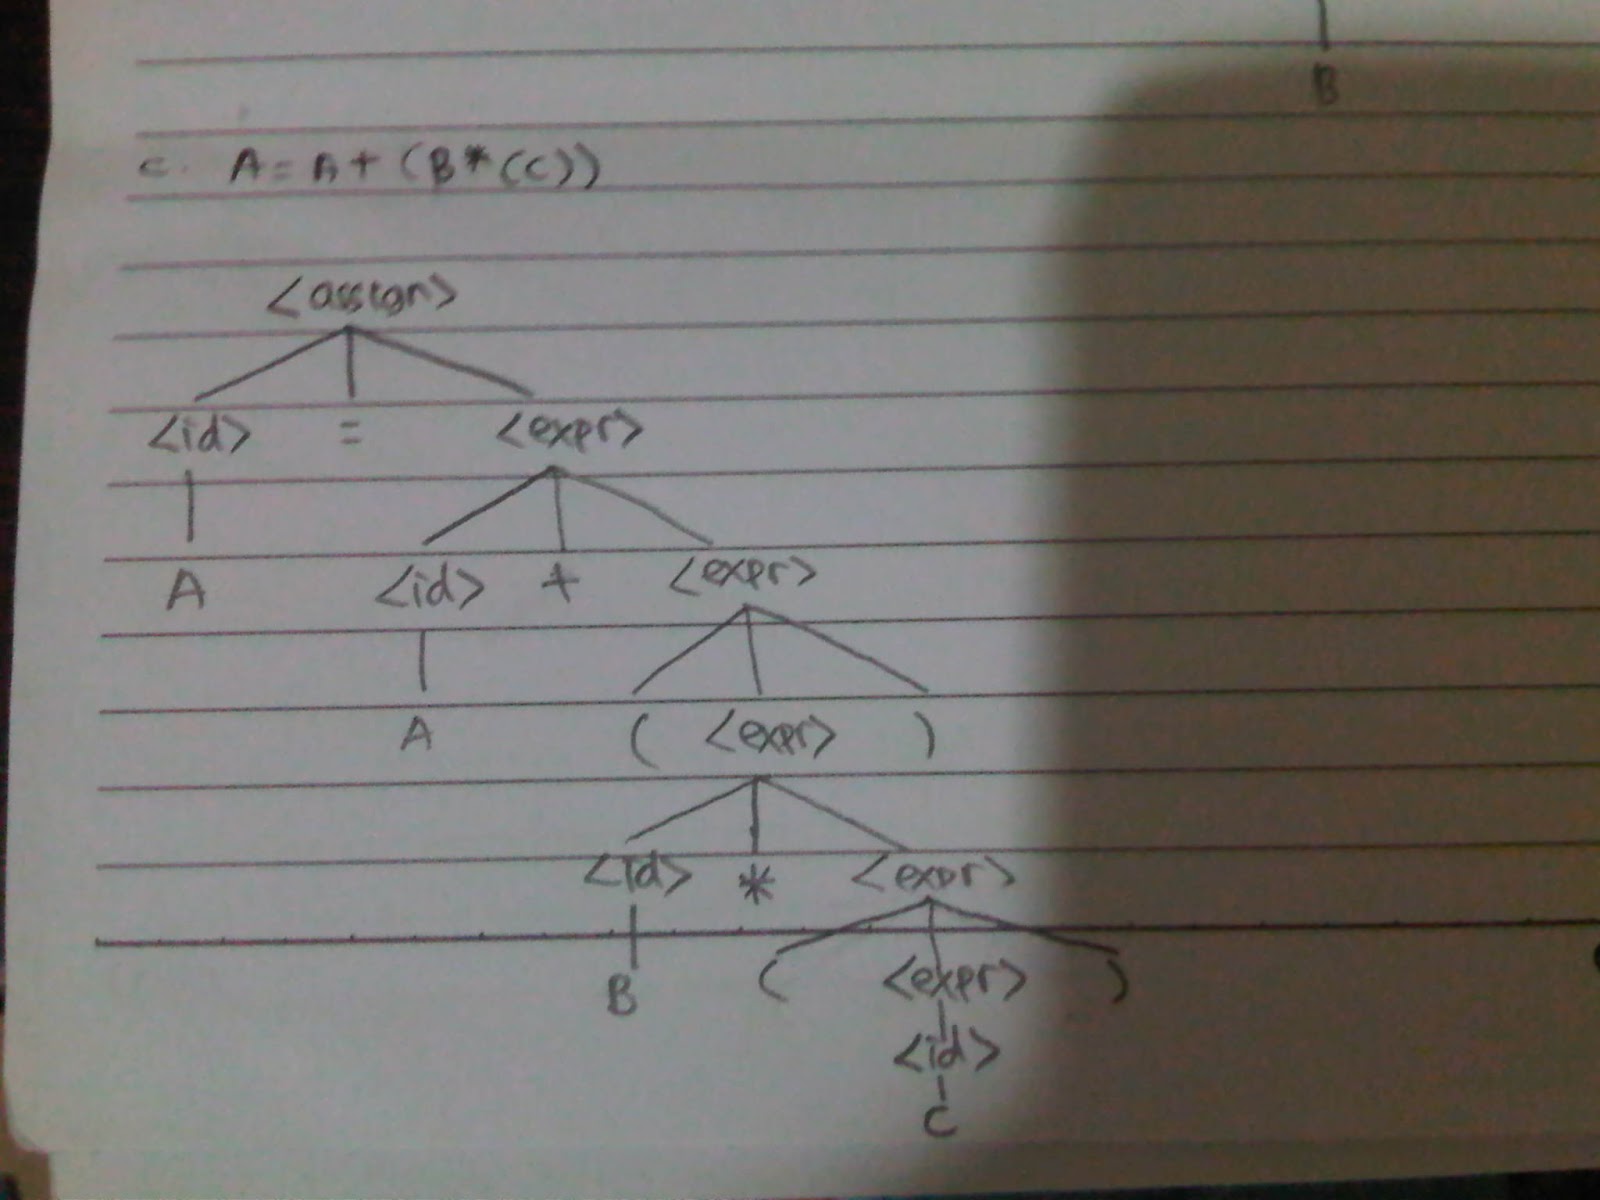 B
c. A = A + (B * (C))
<assign>
<id> = <expr>
A <id> + <expr>
A ( <expr> )
<id> * <expr>
B ( <expr> )
<id>
C